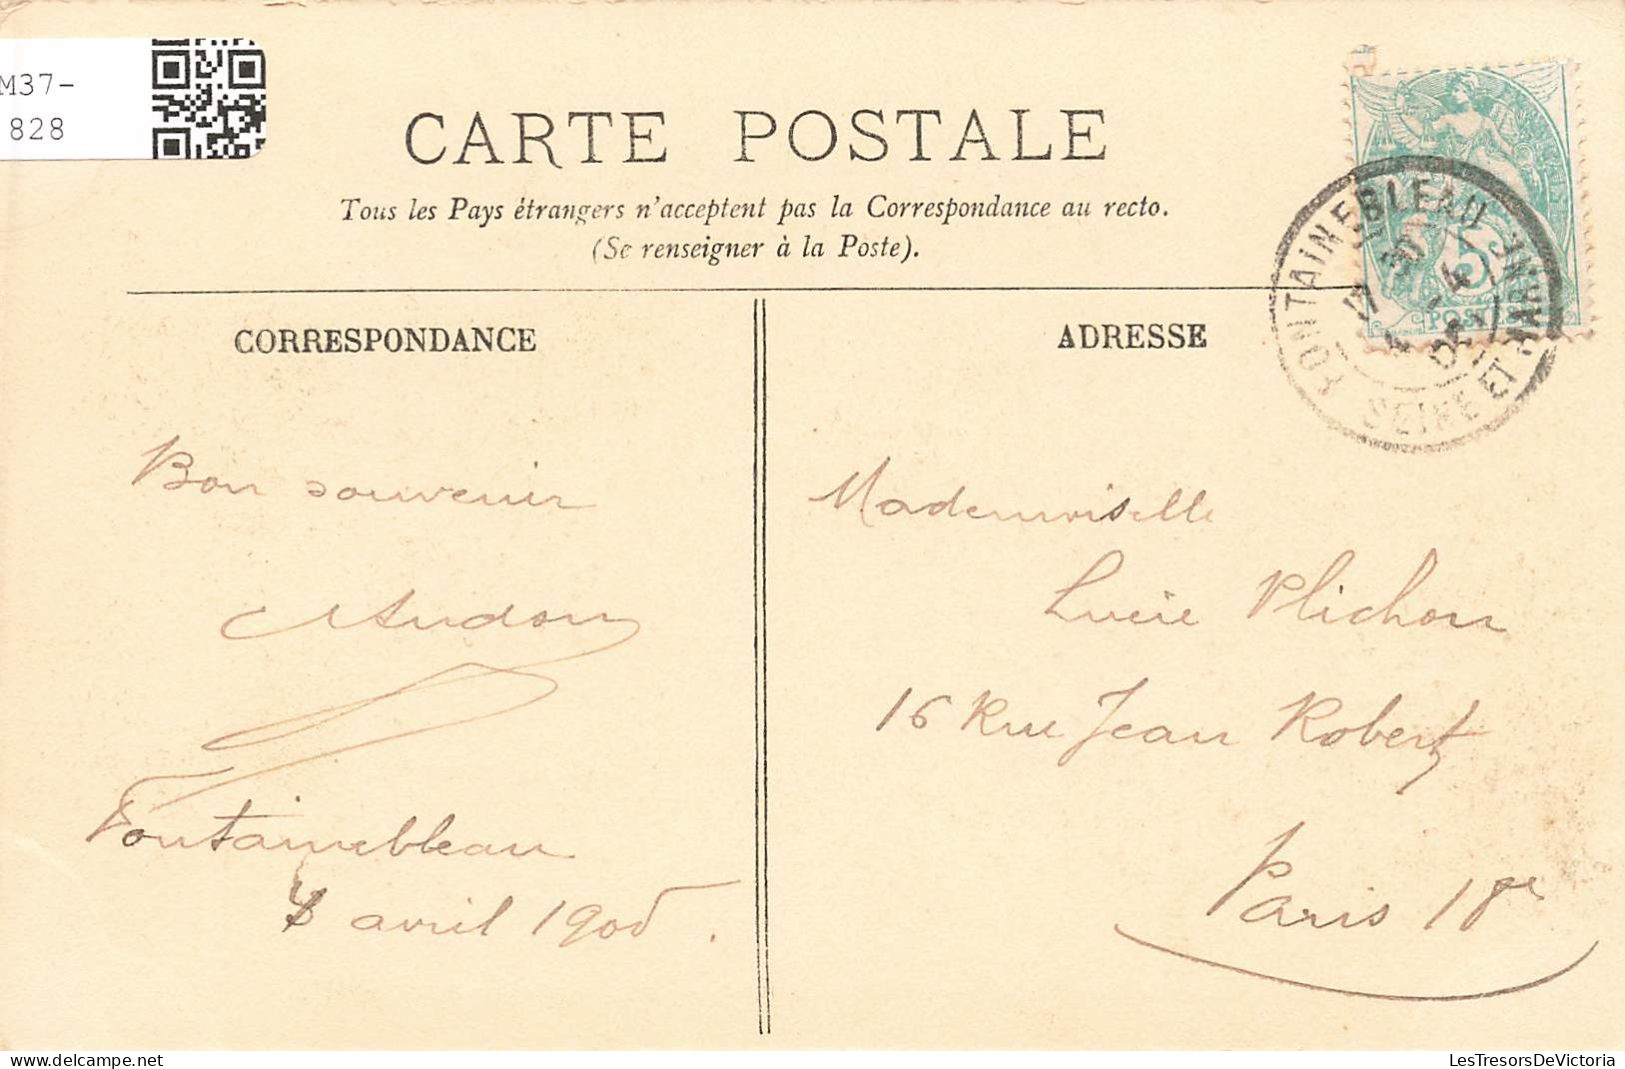 M37-
828
CARTE POSTALE
Tous les Pays étrangers n'acceptent pas la Correspondance au recto.
(Se renseigner à la Poste).
CORRESPONDANCE
ADRESSE
FONTAINEBLEAU
SEINE ET MARNE
5
POSTES
Bon souvenir
Audon
Fontainebleau
avril 1905.
Mademoiselle
Lucie Plichon
16 Rue Jean Robert
Paris 18e
LesTresorsDeVictoria
delcampe.net